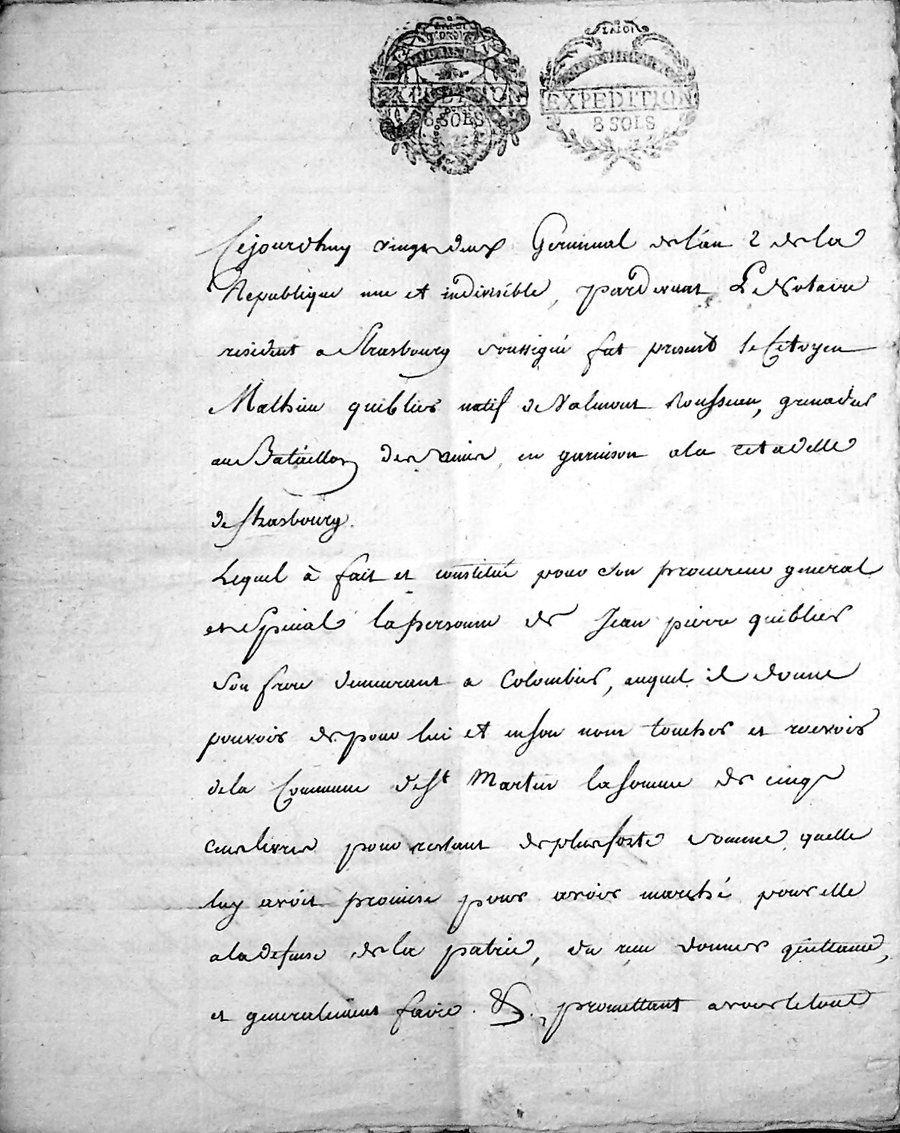 LA LOI
LA LOI
EXPEDITION
8 SOLS
EXPEDITION
8 SOLS
Cejourdhuy vingt deux Germinal de l'an 2 de la
Republique une et indivisible, pardevant Le Notaire
resident a Strasbourg soussigné fut present le Citoyen
Mathieu quiblier natif de Valmont Rousseau, grenadier
au Bataillon des amis, en garnison a la citadelle
de Strasbourg.
Lequel à fait et constitué pour son procureur general
et special la personne de Jean pierre quiblier
son frere demeurant a Colombier, auquel il donne
pouvoir de pour lui et en son nom toucher et recevoir
de la Commune de St Martin la somme de cinq
cens livres pour restant de plus forte somme quelle
luy avoit promise pour avoir marché pour elle
a la defense de la patrie, du reçu donner quittance,
et generalement faire &. promettant avoir le tout